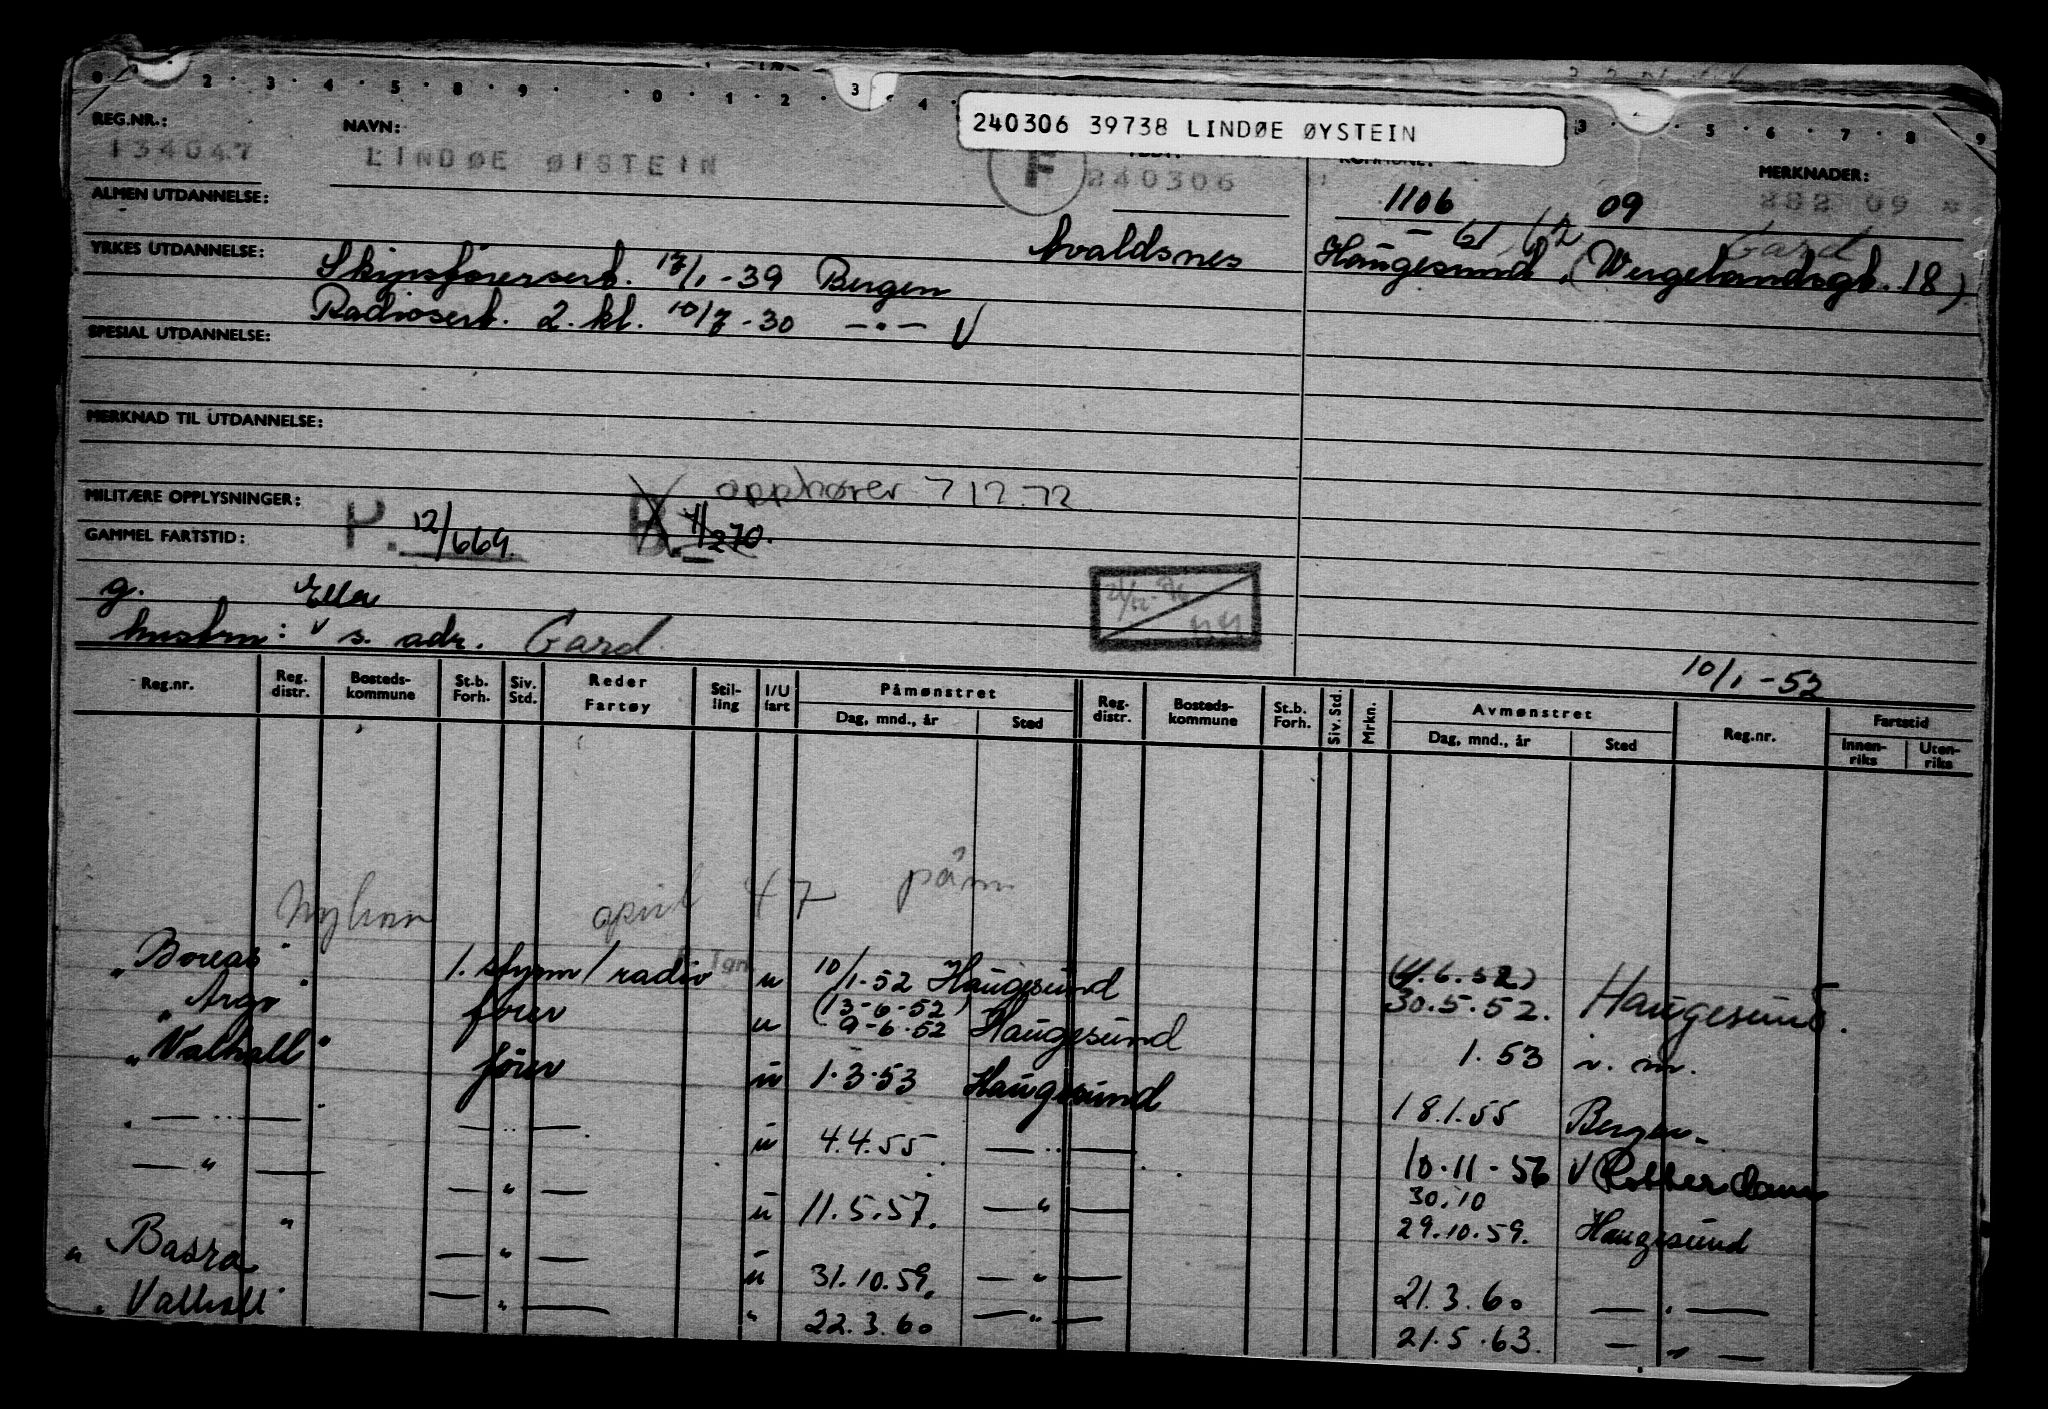 0 · 2 · 3 · 4 · 5 · 8 · 9 · · 0 · 1 · 2 · 3 · 4 · 3 · 5 · 6 · 7 · 8 · 9
240306 39738 LINDØE ØYSTEIN
REG.NR.: NAVN: MERKNADER:
134047 LINDØE ØISTEIN F 240306 1106 09 282 09
ALMEN UTDANNELSE: 61 62 Gard
YRKES UTDANNELSE: Skipsførersert. 17/1-39 Bergen Avaldsnes Haugesund, (Wergelandsgt. 18)
Radiosert. 2. kl. 10/7-30 —·— V
SPESIAL UTDANNELSE:
MERKNAD TIL UTDANNELSE:
MILITÆRE OPPLYSNINGER: P. 12/669. B. 11/270. opphører 7 12.72
GAMMEL FARTSTID:
g. Ella
hustru: s. adr. Gard
10/1-52
Reg.nr. Reg. distr. Bosteds-kommune St.b. Forh. Siv. Std. Reder Fartøy Stil-ling I/U fart Påmønstret Dag, mnd., år Sted Reg. distr. Bosteds-kommune St.b. Forh. Siv. Std. Mrkn. Avmønstret Dag, mnd., år Sted Reg.nr. Fartstid Innen-riks Uten-riks
april 47 påm
"Boreas" 1. styrm/radio u 10/1-52 Haugesund (4.6.52) 30.5.52. Haugesund.
"Argo" fører u (13-6-52) 9-6-52 Haugesund 1.53 n.m.
"Valhall" fører u 1.3.53 Haugesund 18.1.55 Bergen
— " — — " — u 4.4.55 — " — 10.11-56 V Rotterdam
— " — — " — u 11.5.57. — " — 30.10 29.10.59. Haugesund
"Basra" — " — u 31.10.59. — " — 21.3.60 — " —
"Valhall" — " — " 22.3.60 — " — 21.5.63. — " —